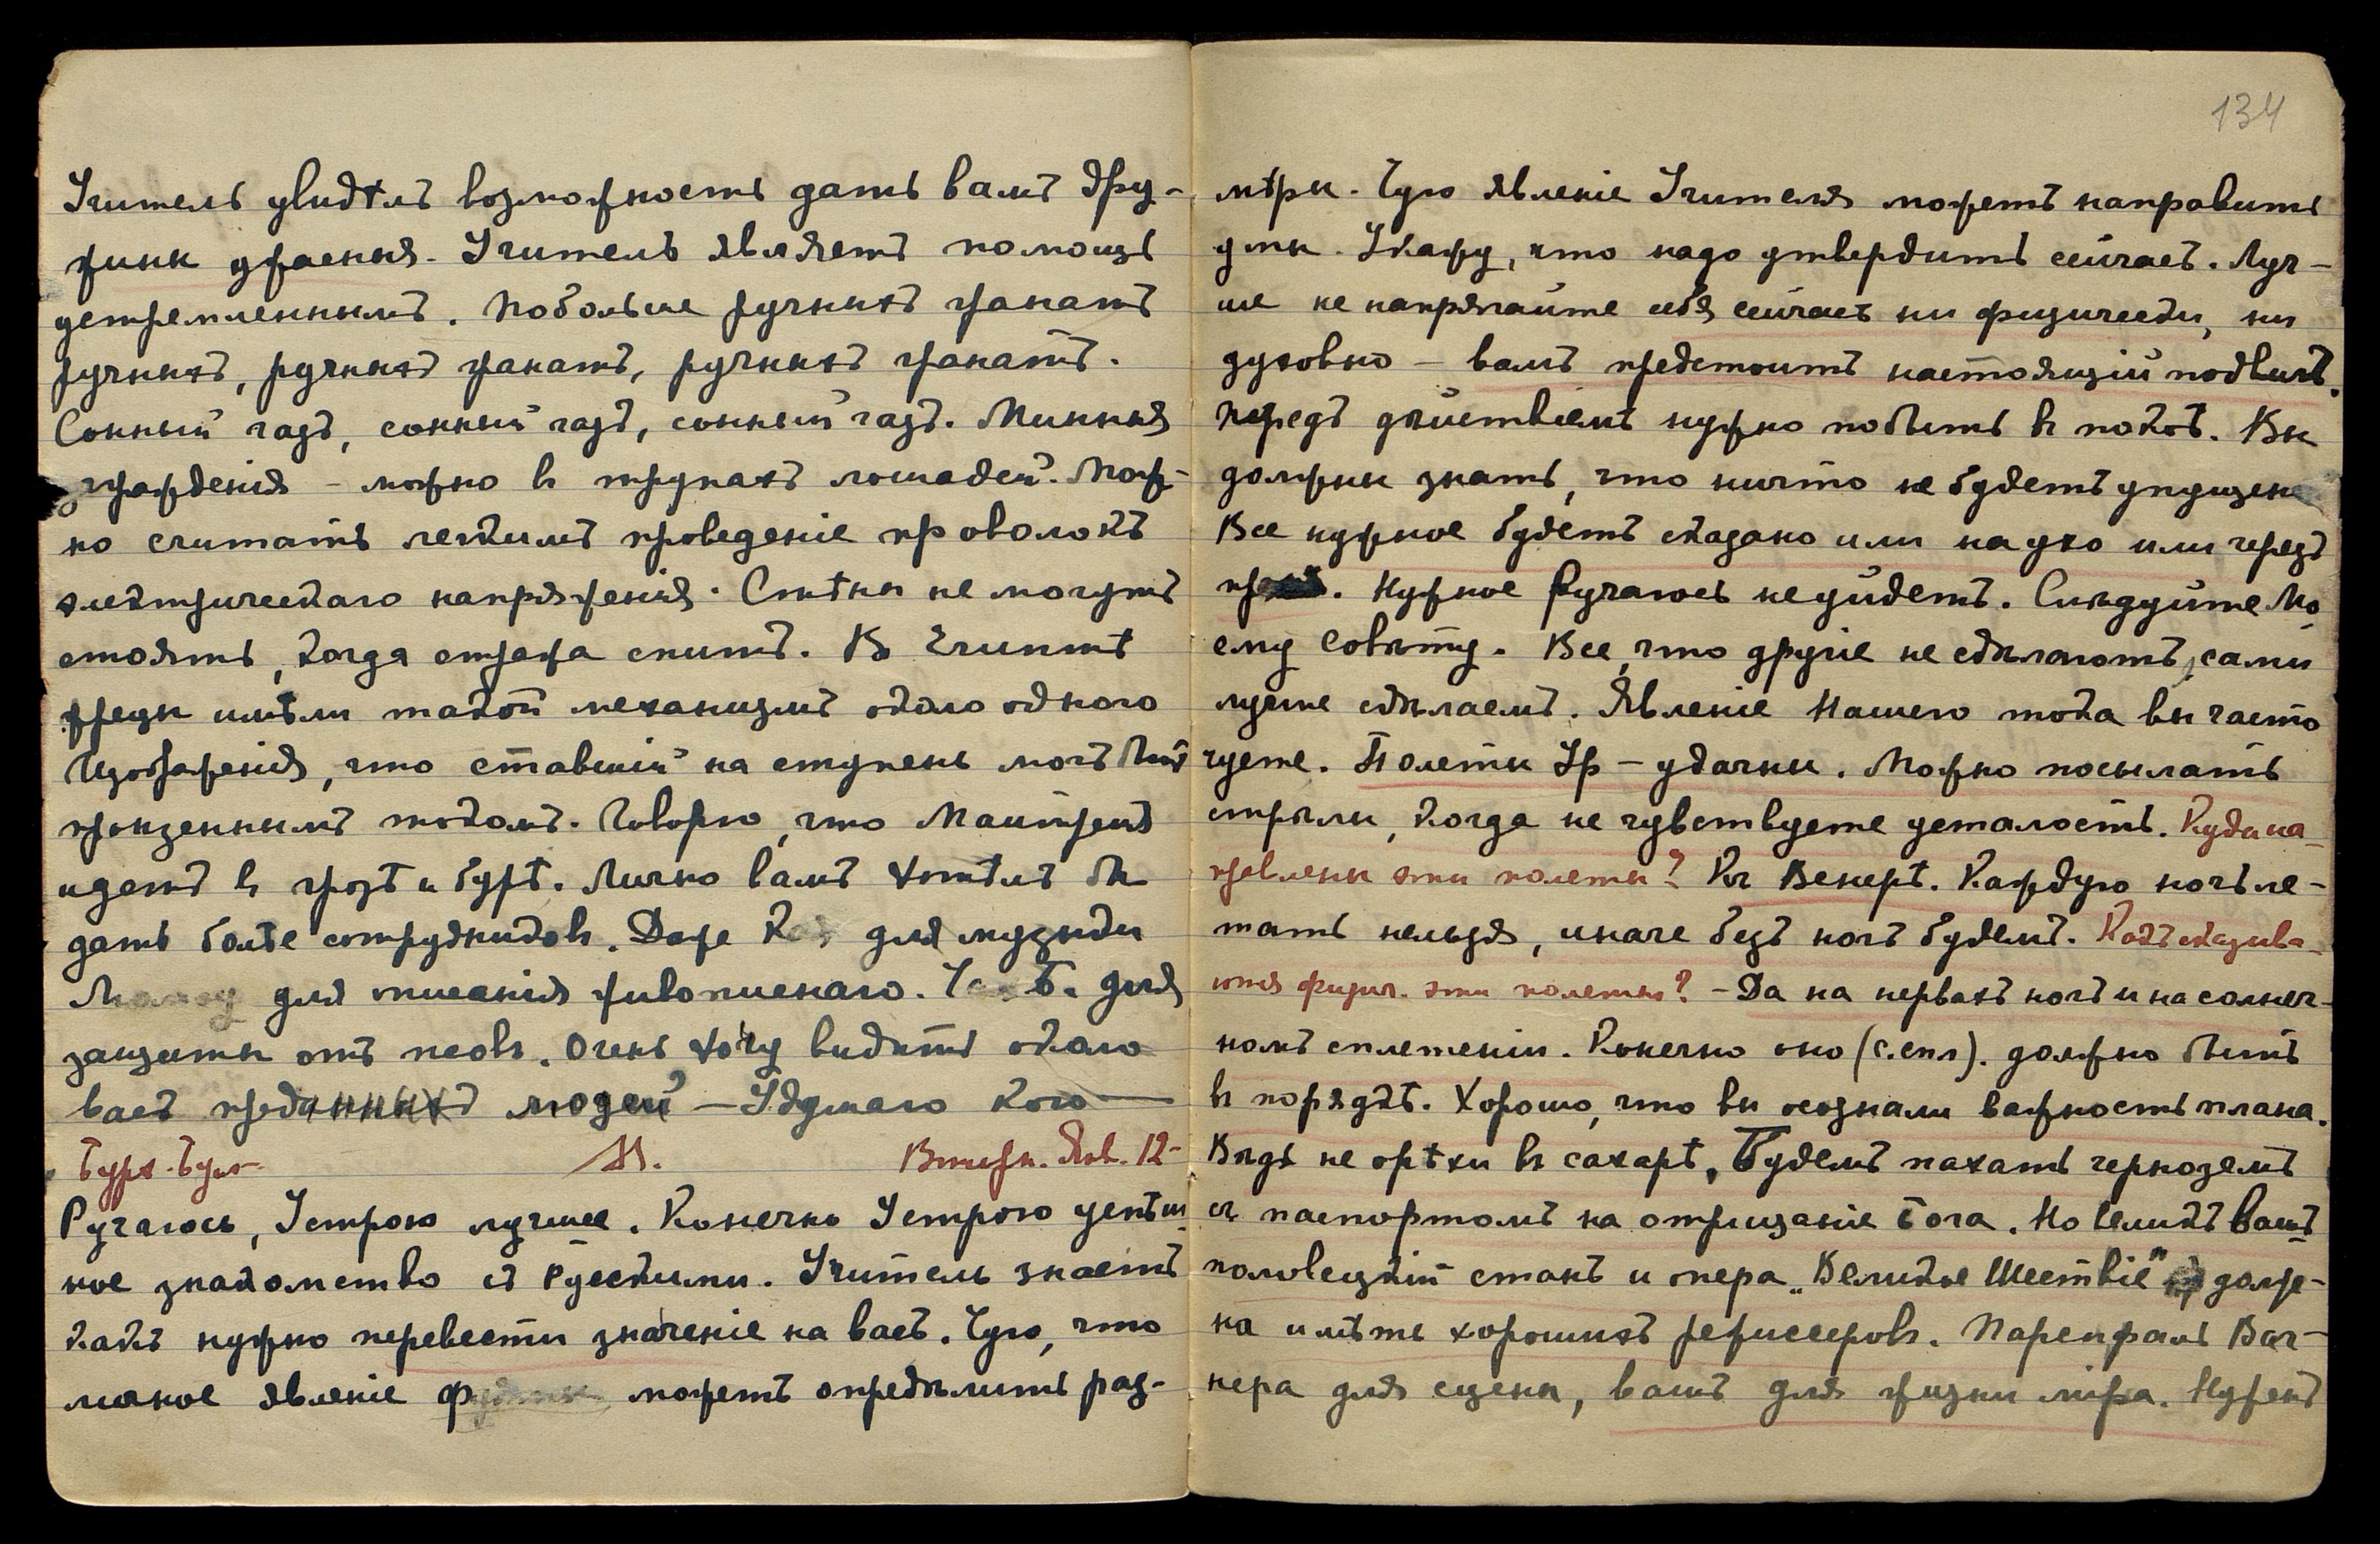 Учитель увидѣлъ возможность дать вамъ дру-
жины ужасныя. Учитель являетъ помощь
устремленнымъ. Побольше ручныхъ гранатъ
ручныхъ, ручныхъ гранатъ, ручныхъ гранатъ.
Сонный газъ, сонный газъ, сонный газъ. Минныя
загражденія – можно въ трупахъ лошадей. Мож-
но считать легкимъ проведеніе проволокъ
электрическаго напряженія. Стѣны не могутъ
стоять, когда стража спитъ. В Египтѣ
жрецы имѣли такой механизмъ около одного
Изображенія, что ставшій на ступень могъ быть
пронзеннымъ токомъ. Говорю, что Майтрейя
идетъ въ грозѣ и бурѣ. Лично вамъ хотѣлъ бы
дать болѣе сотрудниковъ. Даже для музыки
для писанія живописнаго. для
защиты отъ псовъ. Очень хочу видѣть около
васъ преданныхъ людей – Удумаю кого
М. Вторн. Янв. 12-
Ручаюсь, Устрою лучшее. Конечно Устрою успѣш-
ное знакомство съ Русскими. Учитель знаетъ
какъ нужно перевести значеніе на васъ. Чую, что
явленіе можетъ опредѣлить раз-
134
мѣры. Чую явленіе Учителя можетъ направить
умы. Укажу, что надо утвердить сейчасъ. Луч-
ше не напрягайте себя сейчасъ ни физически, ни
духовно – вамъ предстоитъ настоящій подвигъ.
Передъ дѣйствіемъ нужно побыть въ покоѣ. Вы
должны знать, что ничто не будетъ упущено
Все нужное будетъ сказано или на ухо или черезъ
Нужное Ручаюсь не уйдетъ. Слѣдуйте Мо-
ему Совѣту. Все, что другіе не сдѣлаютъ, сами
лучше сдѣлаемъ. Явленіе Нашего тока вы часто
чуете. Полеты Ур – удачны. Можно посылать
стрѣлы, когда не чувствуете усталость. Куда на-
правлены эти полеты? Къ Венерѣ. Каждую ночь ле-
тать нельзя, иначе безъ ногъ будемъ. Какъ сказыва-
ются физич. эти полеты? – Да на нервахъ ногъ и на солнеч-
номъ сплетеніи. Конечно оно (с.спл). должно быть
въ порядкѣ. Хорошо, что вы осознали важность плана.
Вѣдь не орѣхи въ сахарѣ, Будемъ пахать черноземъ
съ паспортомъ на отрицаніе Бога. Но Великъ вашъ
половецкій станъ и опера „Великое Шествіе" долж-
на имѣть хорошихъ режиссеровъ. Парсифаль Ваг-
нера для сцены, вашъ для жизни міра. Нуженъ